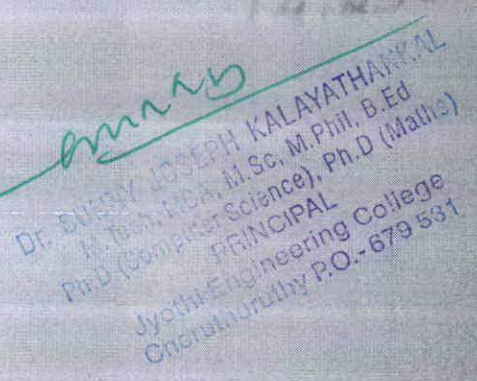 Dr. SUNNY JOSEPH KALAYATHANKAL
M. Tech, MCA, M.Sc, M.Phil, B.Ed
Ph.D (Computer Science), Ph.D (Maths)
PRINCIPAL
Jyothi Engineering College
Cheruthuruthy P.O.- 679 531